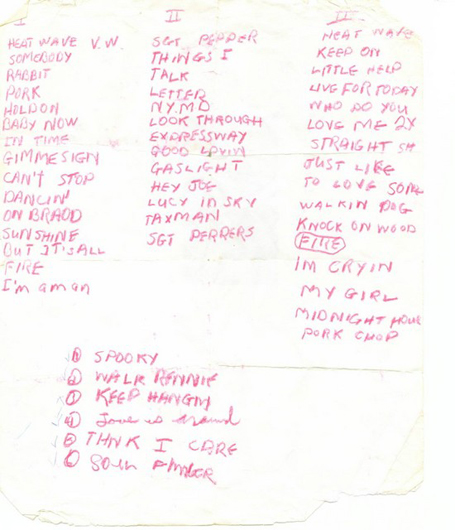 I
HEAT WAVE V.W.
SOMEBODY
RABBIT
PORK
HOLDON
BABY NOW
IN TIME
GIMMESIGN
CAN'T STOP
DANCIN'
ON BRAOD
SUNSHINE
BUT IT'S ALL
FIRE
I'm a man
II
SGT PEPPER
THINGS I
TALK
LETTER
N.Y.MD
LOOK THROUGH
EXPRESSWAY
GOOD LOVIN
GASLIGHT
HEY JOE
LUCY IN SKY
TAXMAN
SGT PEPPERS
III
HEAT WAVE
KEEP ON
LITTLE HELP
LIVE FOR TODAY
WHO DO YOU
LOVE ME 2X
STRAIGHT SH
JUST LIKE
TO LOVE SOM
WALKIN DOG
KNOCK ON WOOD
FIRE
IM CRYIN
MY GIRL
MIDNIGHT HOUR
PORK CHOP
1 SPOOKY
2 WALK RENNIE
3 KEEP HANGIN
4 Love is around
5 THNK I CARE
6 SOUL